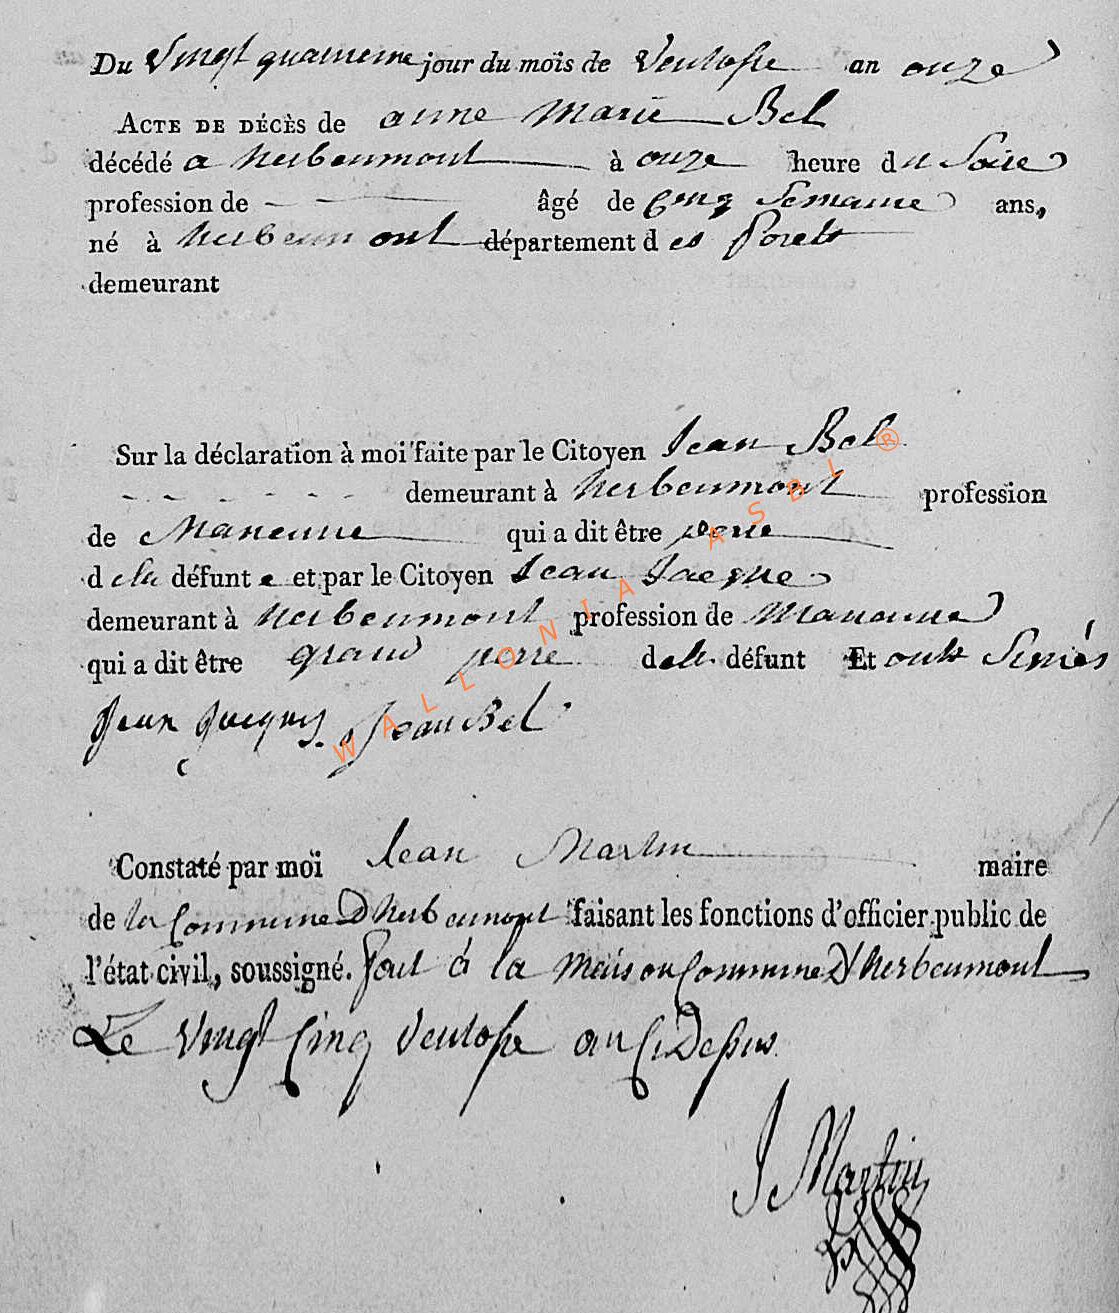 Du Vingt quatrieme jour du mois de Ventosse an onze
ACTE DE DÉCÈS de anne Marie Bel
décédé a herbeumont à onze heure du Soire
profession de - - âgé de Cinq Semaine ans,
né à herbeumont département des forets
demeurant
Sur la déclaration à moi faite par le Citoyen Jean Bel
- - - - - - demeurant à herbeumont profession
de Maneuve qui a dit être perre
de la défunte et par le Citoyen Jean Jacque
demeurant à herbeumont profession de Manoeuve
qui a dit être grand perre dele défunt Et onts Sinnés
Jean Jacques Jean Bel
WALLONIA ASBL ®
Constaté par moi Jean Martin maire
de la Commune D'herbeumont faisant les fonctions d'officier public de
l'état civil, soussigné. fait à la maison Commune D'herbeumont
Le Vingt Cinq Ventosse an Ci Desus
J Martin